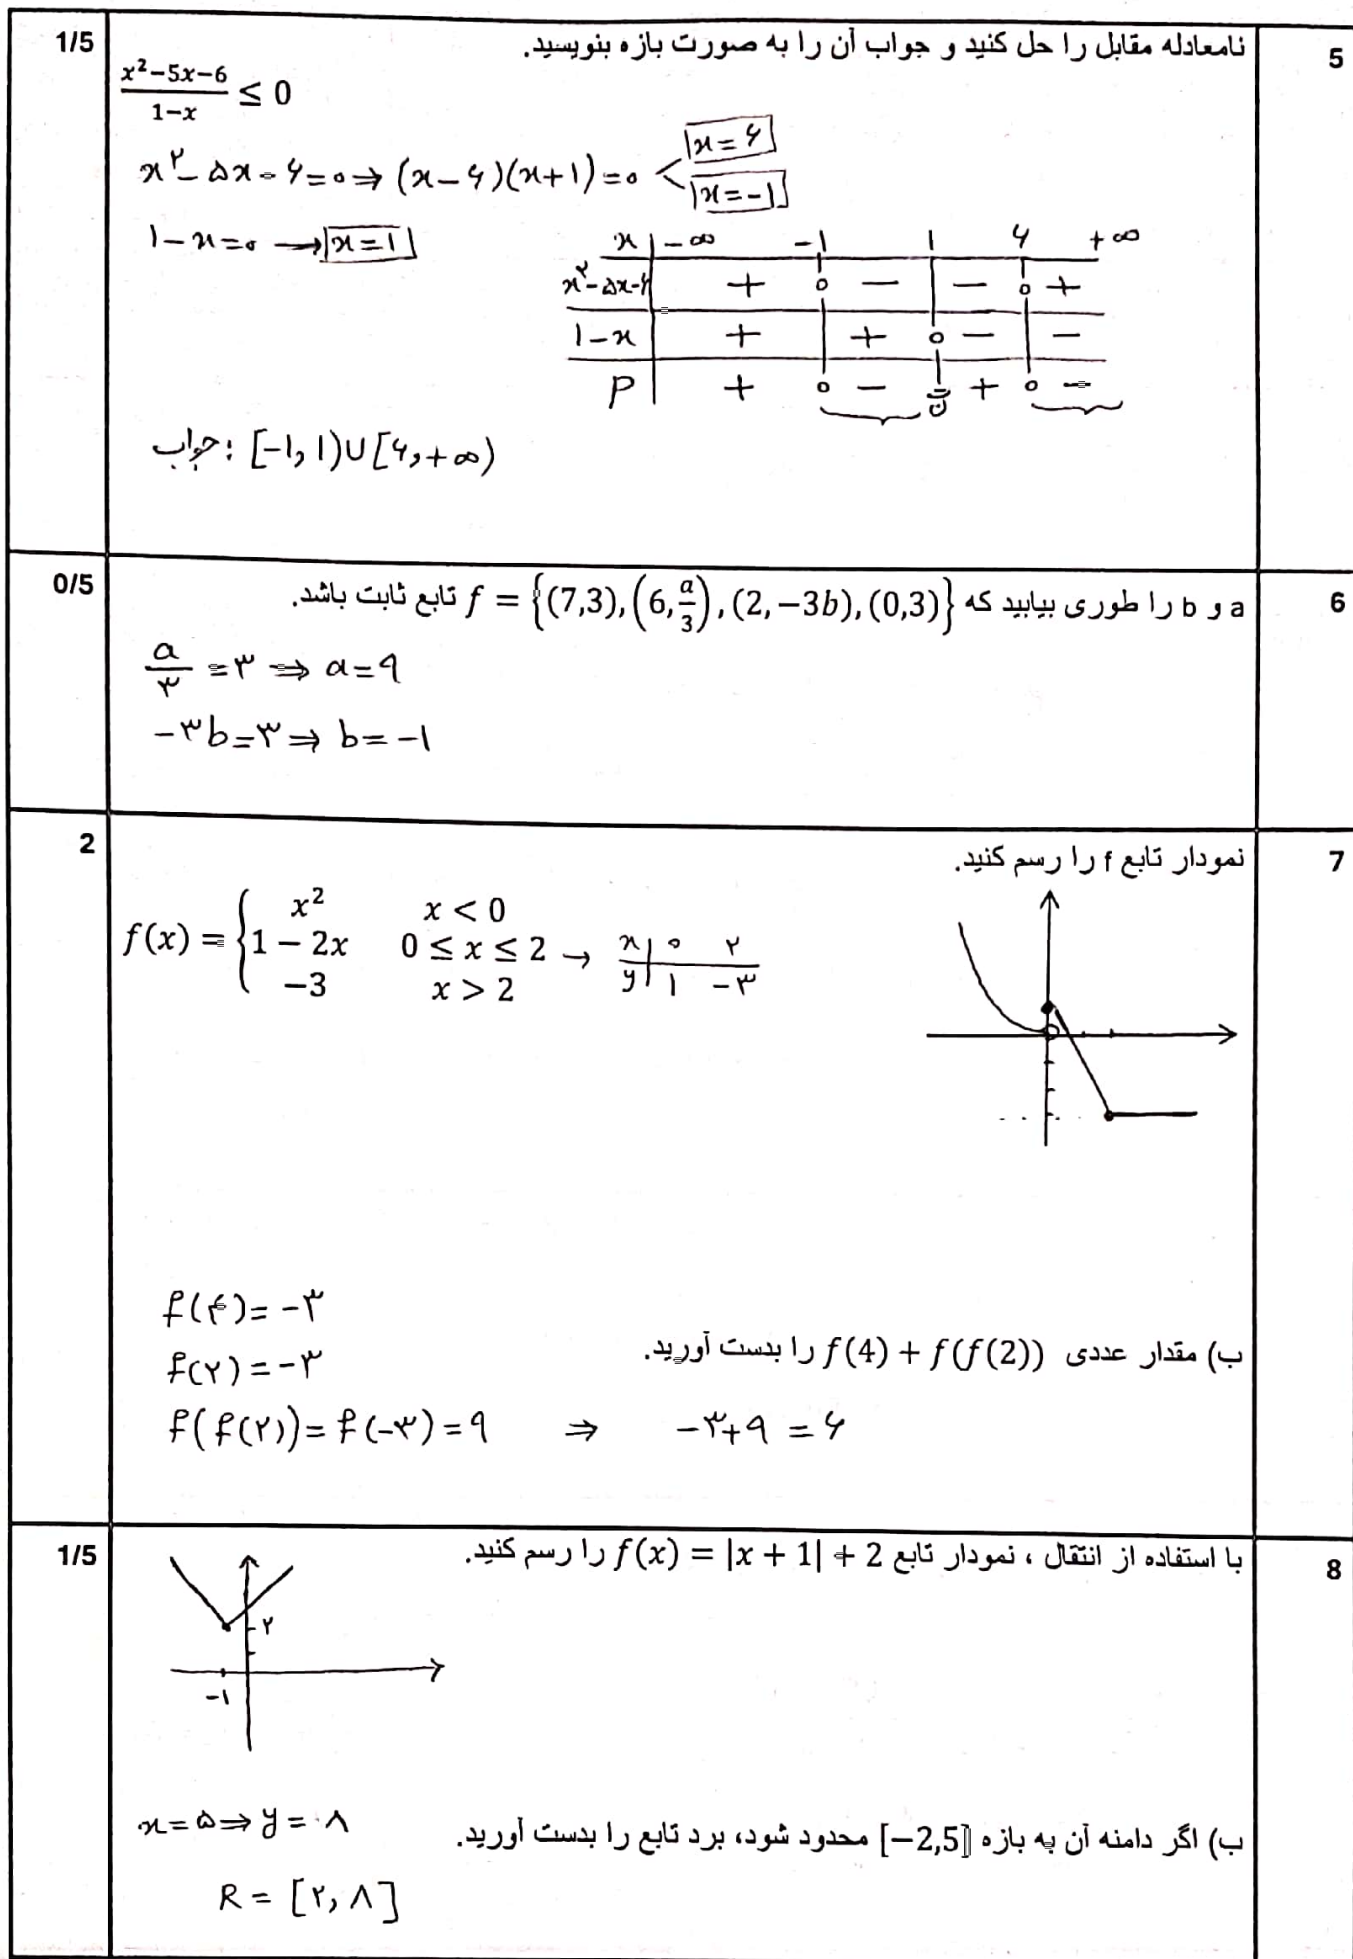 5
نامعادله مقابل را حل کنید و جواب آن را به صورت بازه بنویسید.
1/5
(x²−5x−6)/(1−x) ≤ 0
x²−۵x−۶=۰ ⇒ (x−۶)(x+۱)=۰ < x=۶
x=−۱
۱−x=۰ → x=۱
x | −∞ −۱ ۱ ۶ +∞
x²−۵x−۶ | + ۰ − | − ۰ +
۱−x | + | + ۰ − | −
P | + ۰ − ت ن + ۰ −
جواب: [−۱,۱)∪[۶,+∞)
6
a و b را طوری بیابید که f = {(7,3), (6,a/3), (2,−3b), (0,3)} تابع ثابت باشد.
0/5
a/۳ = ۳ ⇒ a=۹
−۳b=۳ ⇒ b=−۱
7
نمودار تابع f را رسم کنید.
2
f(x) = { x² x < 0
1 − 2x 0 ≤ x ≤ 2 → x | ۰ ۲
y | ۱ −۳
−3 x > 2
f(۴)= −۳
ب) مقدار عددی f(4) + f(f(2)) را بدست آورید.
f(۲) = −۳
f(f(۲)) = f(−۳) = ۹ ⇒ −۳+۹ = ۶
8
با استفاده از انتقال ، نمودار تابع f(x) = |x + 1| + 2 را رسم کنید.
1/5
۲
−۱
ب) اگر دامنه آن به بازه [−2,5] محدود شود، برد تابع را بدست آورید.
x=۵ ⇒ y=۸
R = [۲,۸]